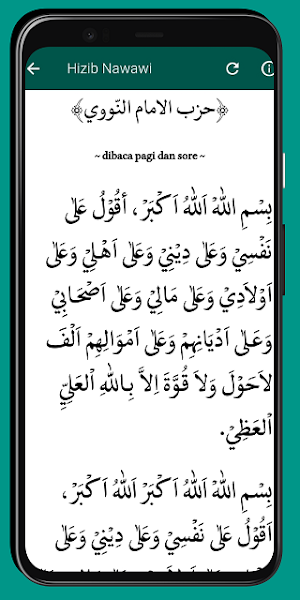 Hizib Nawawi
﴿حزب الامام النّووي﴾
~ dibaca pagi dan sore ~
بِسْمِ اللهْ اَللهُ اَكْبَرْ، أقُوْلُ عَلىٰ
نَفْسِيْ وَعَلىٰ دِيْنِيْ وَعَلىٰ اَهْلِيْ وَعَلىٰ
اَوْلَادِيْ وَعَلىٰ مَالِيْ وَعَلىٰ اَصْحَابِيْ
وَعَلىٰ اَدْيَانِهِمْ وَعَلىٰ اَمْوَالِهِمْ اَلْفَ
لَاحَوْلَ وَلاَ قُوَّةَ اِلاَّ بِاللهِ الْعَلِيِّ
الْعَظِيْ.
بِسْمِ اللهْ اَللهُ اَكْبَرْ اَللهُ اَكْبَرْ،
اَقُوْلُ عَلىٰ نَفْسِيْ وَعَلىٰ دِيْنِيْ وَعَلىٰ